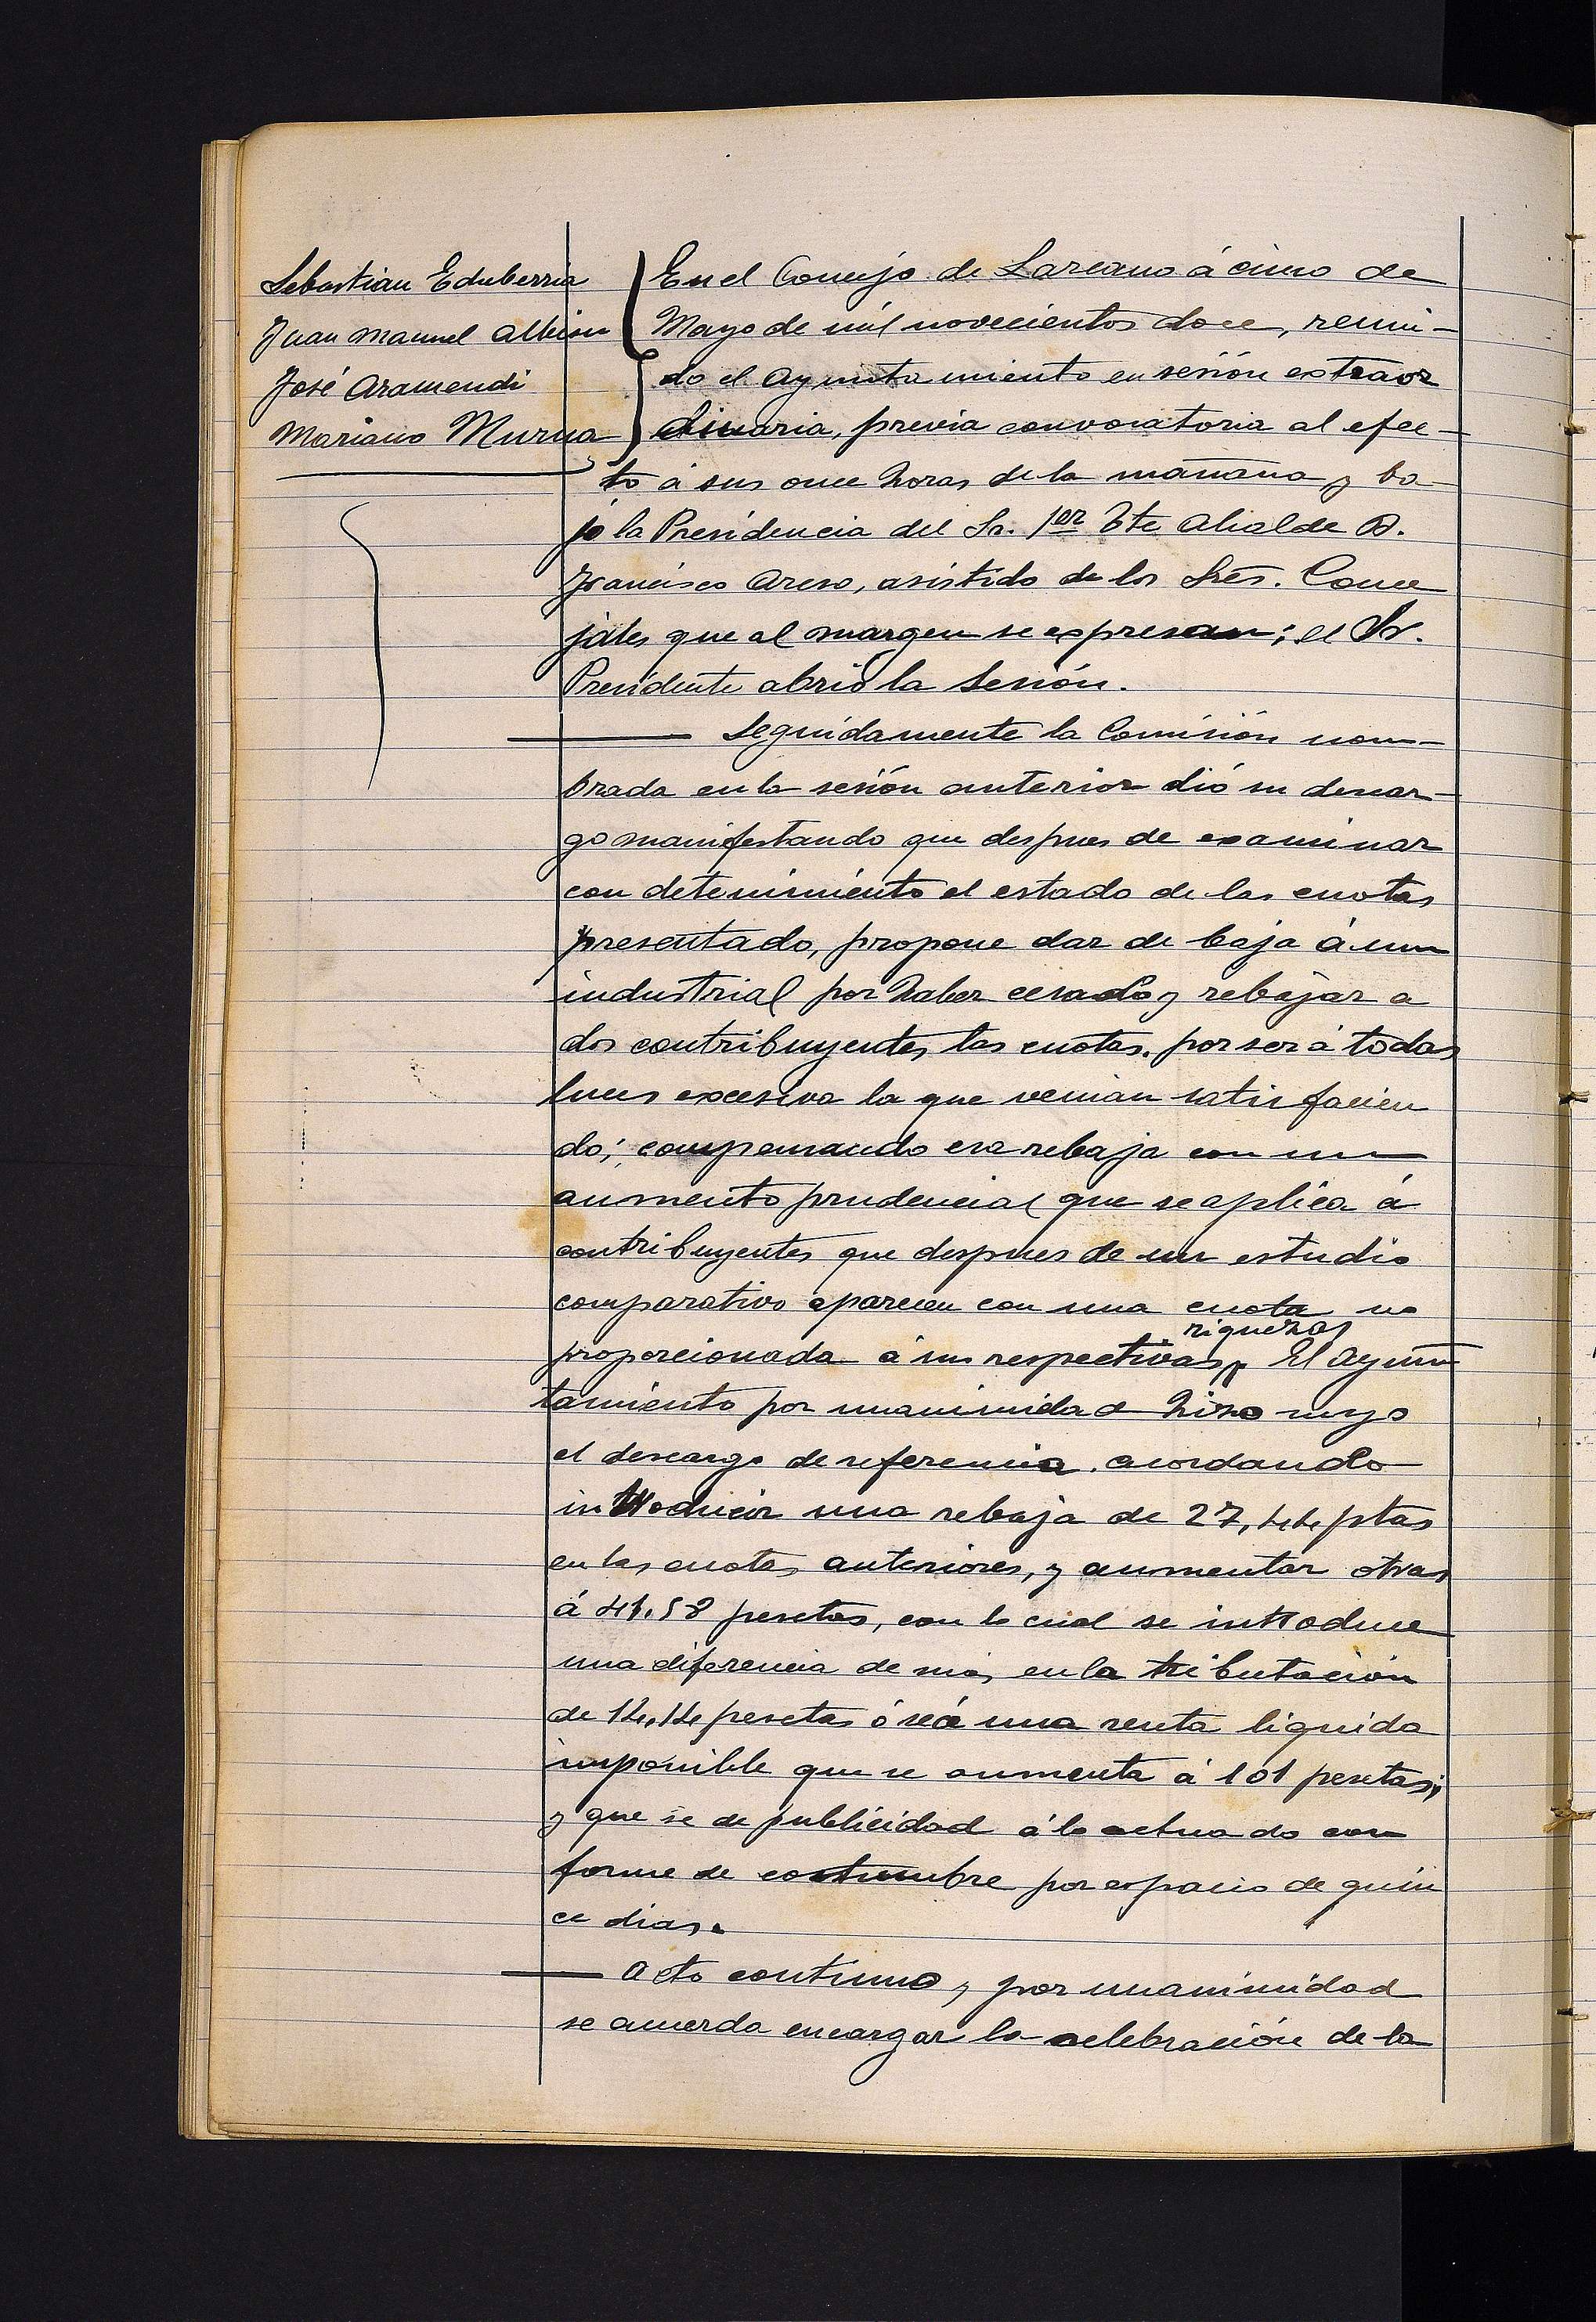 Sebastian Echeberria
Juan Manuel Albisu
José Aramendi
Mariano Murua
En el Concejo de Lazcano á cinco de
Mayo de mil novecientos doce, reuni-
do el Ayuntamiento en sesión extraor
dinaria, previa convocatoria al efec-
to á sus once horas de la mañana y ba-
jo la Presidencia del Sr. 1er Tte Alcalde D.
Francisco Areso, asistido de los Sres. Conce
jales que al margen se expresan; el Sr.
Presidente abrió la Sesión.
Seguidamente la Comisión nom-
brada en la sesión anterior dió su descar-
go manifestando que despues de examinar
con detenimiento el estado de las cuotas
presentado, propone dar de baja á un
industrial por haber cesado y rebajar a
dos contribuyentes las cuotas. por ser á todas
luces excesiva la que venian satisfacien
do; compensando esa rebaja con un
aumento prudencial que se aplica á
contribuyentes que despues de un estudio
comparativo aparecen con una cuota no
proporcionada á sus respectivas riquezas. El Ayun
tamiento por unanimidad hizo suyo
el descargo de referencia. acordando
introducir una rebaja de 27,44 ptas
en las cuotas anteriores, y aumentar otras
á 41.58 pesetas, con lo cual se introduce
una diferencia de más en la tributación
de 14,14 pesetas ó séa una renta liquida
imponible que se aumenta á 101 pesetas;
y que se de publicidad á lo actuado con
forme de costumbre por espacio de quin
ce dias.
Acto continuo y por unanimidad
se acuerda encargar la celebración de la